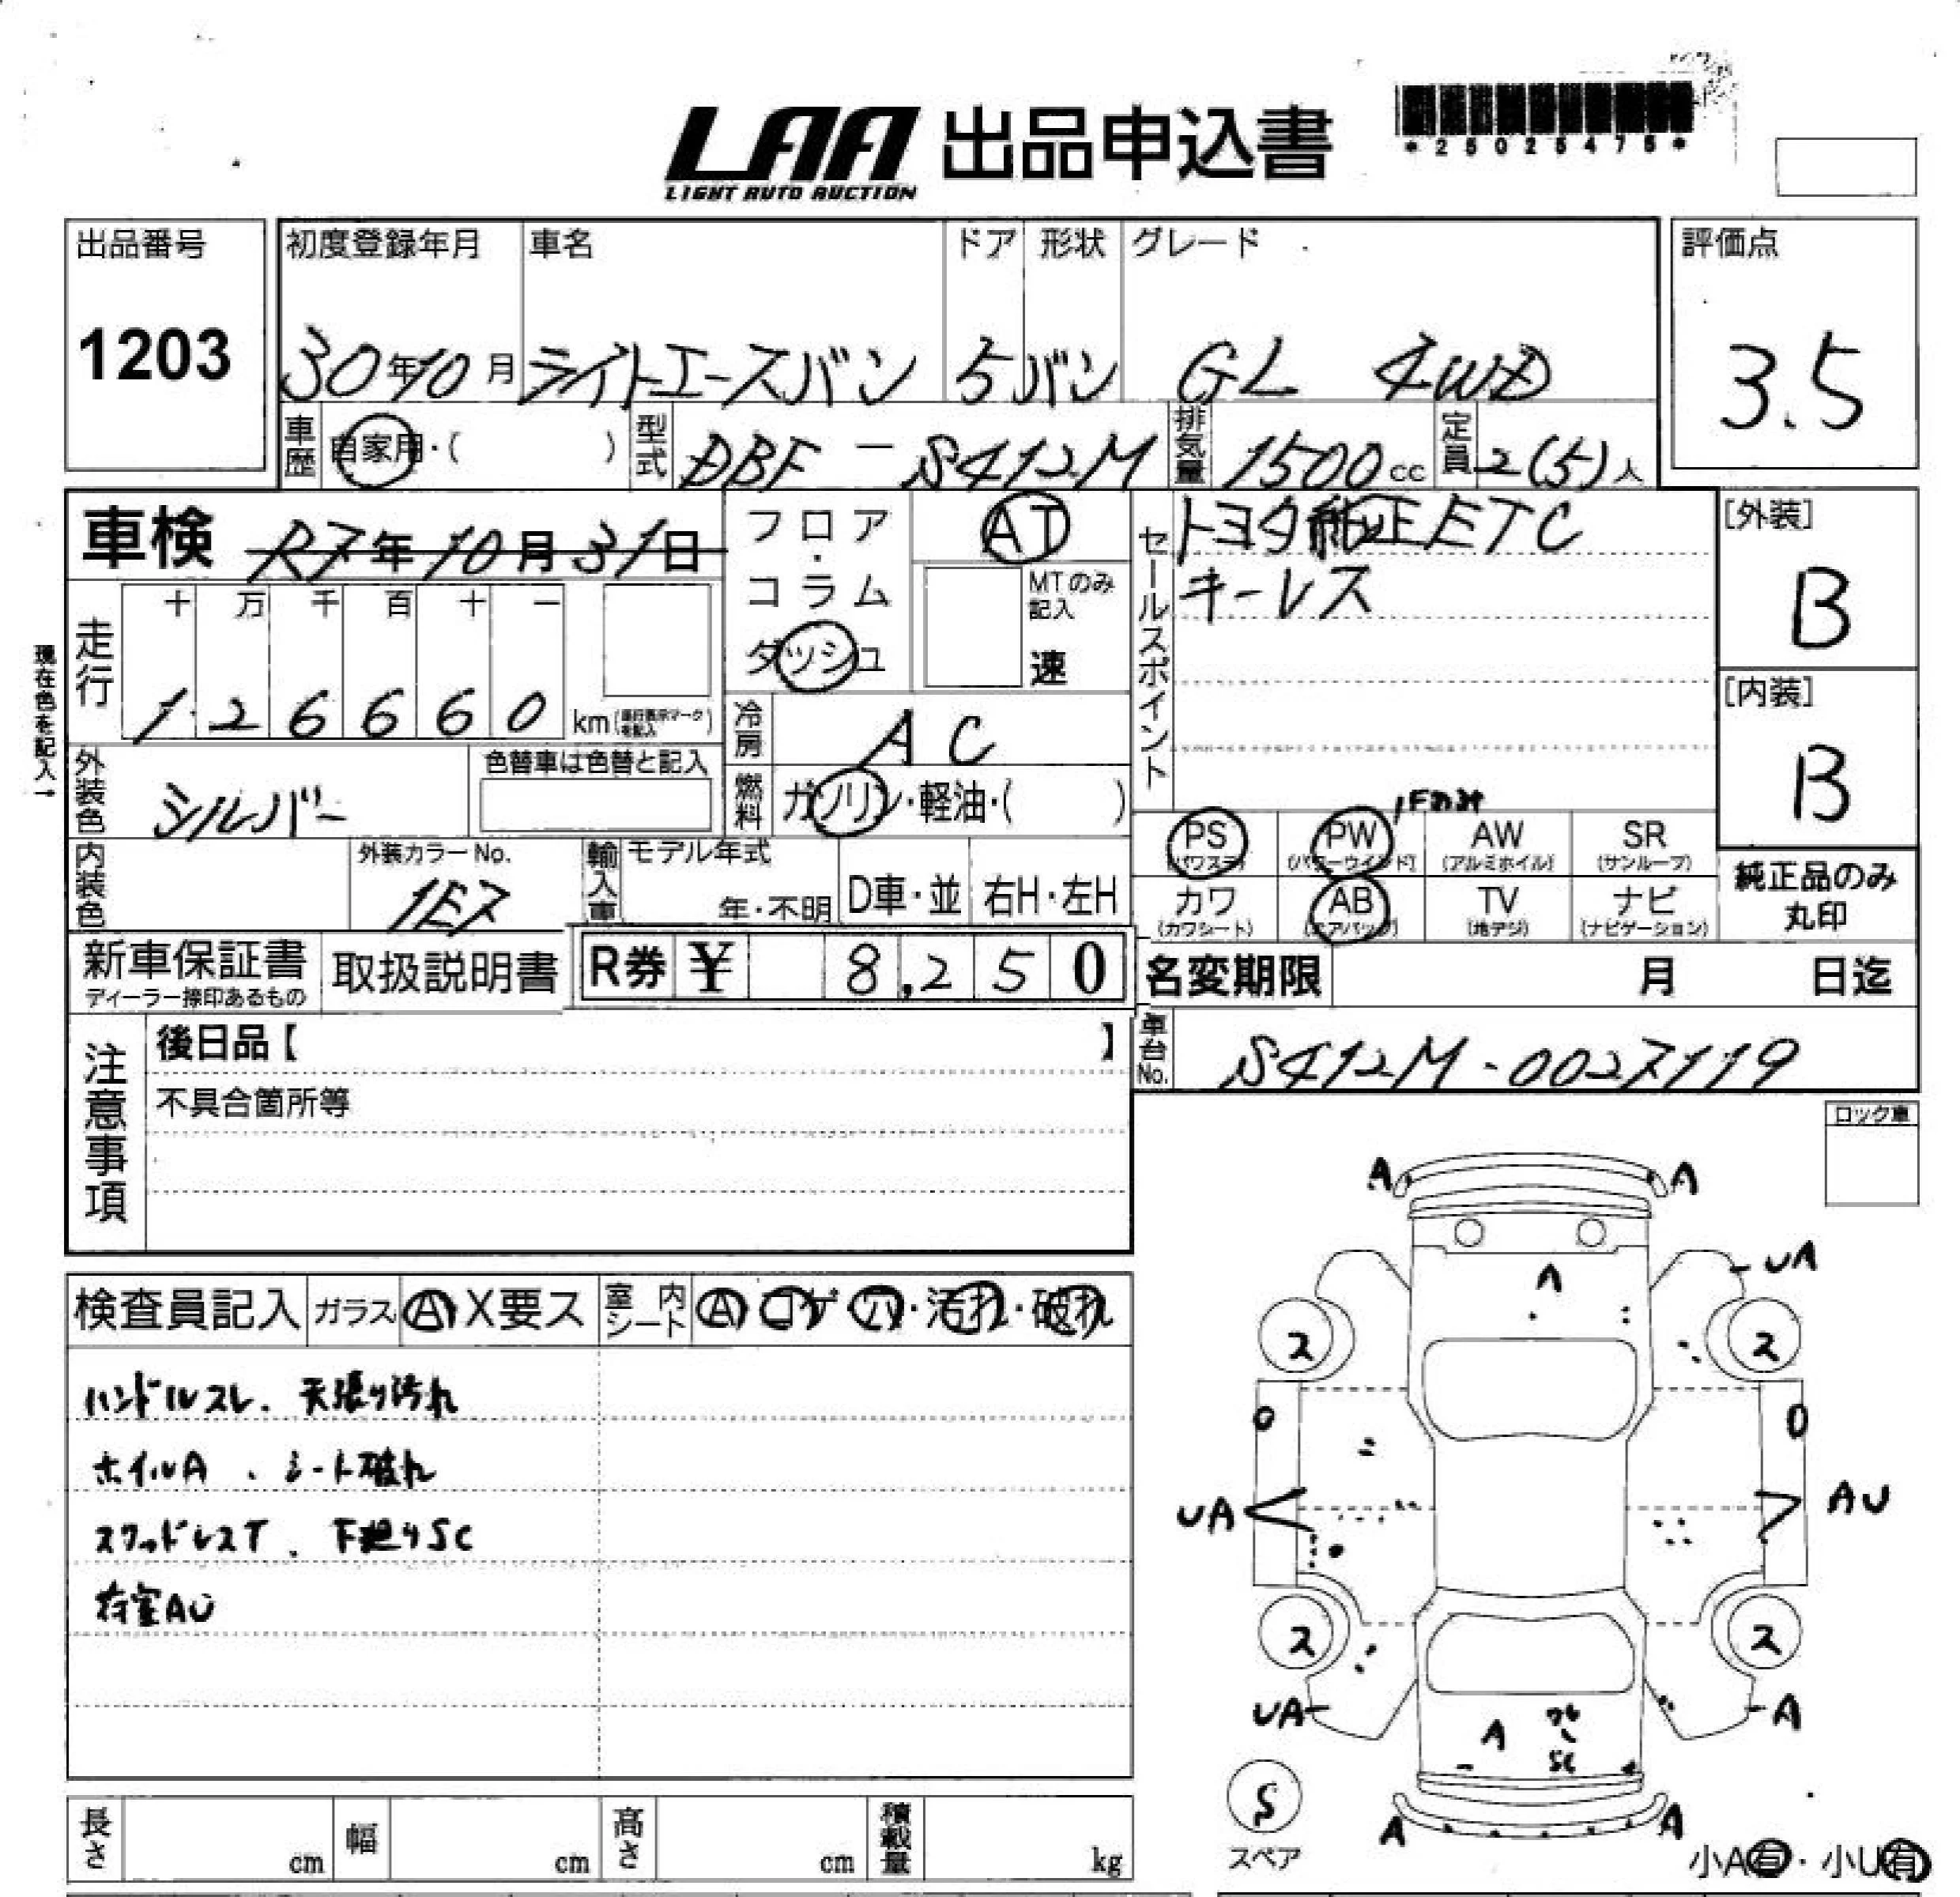 LAA 出品申込書
LIGHT AUTO AUCTION
*25025475*
出品番号 初度登録年月 車名 ドア 形状 グレード 評価点
1203 30年10月 ライトエースバン 5 バン GL 4WD 3.5
車歴 自家用・( ) 型式 DBF-S412M 排気量 1500cc 定員 2(5)人
車検 R7年10月31日
フロア・コラム ダッシュ
AT
MTのみ記入
速
セールスポイント
トヨタ純正ETC
キーレス
[外装]
B
[内装]
B
現在色を記入→
走行 十 万 千 百 十 一
1 2 6 6 6 0 km
冷房 AC
外装色 シルバー 色替車は色替と記入
燃料 ガソリン・軽油・( )
1Fのみ
PS (パワステ) PW (パワーウインド) AW (アルミホイル) SR (サンルーフ)
内装色 外装カラーNo. 1E7 輸入車 モデル年式 年・不明 D車・並 右H・左H
カワ (カワシート) AB (エアバッグ) TV (地デジ) ナビ (ナビゲーション)
純正品のみ
丸印
新車保証書 ディーラー捺印あるもの 取扱説明書 R券 ¥ 8,250
名変期限 月 日迄
注意事項
後日品【 】
車台No. S412M-0027119
不具合箇所等
ロック車
検査員記入 ガラス A X要ス 室内シート A コゲ 穴・汚れ・破れ
ハンドルスレ、天張り汚れ
ホイルA、シート破れ
スタッドレスT、下廻りSC
荷室AU
A A
A UA
2 2
0 0
UA AU
2 2
UA A
A ワレ
SC
S
スペア
A A
小A有・小U有
長さ cm 幅 cm 高さ cm 積載量 kg